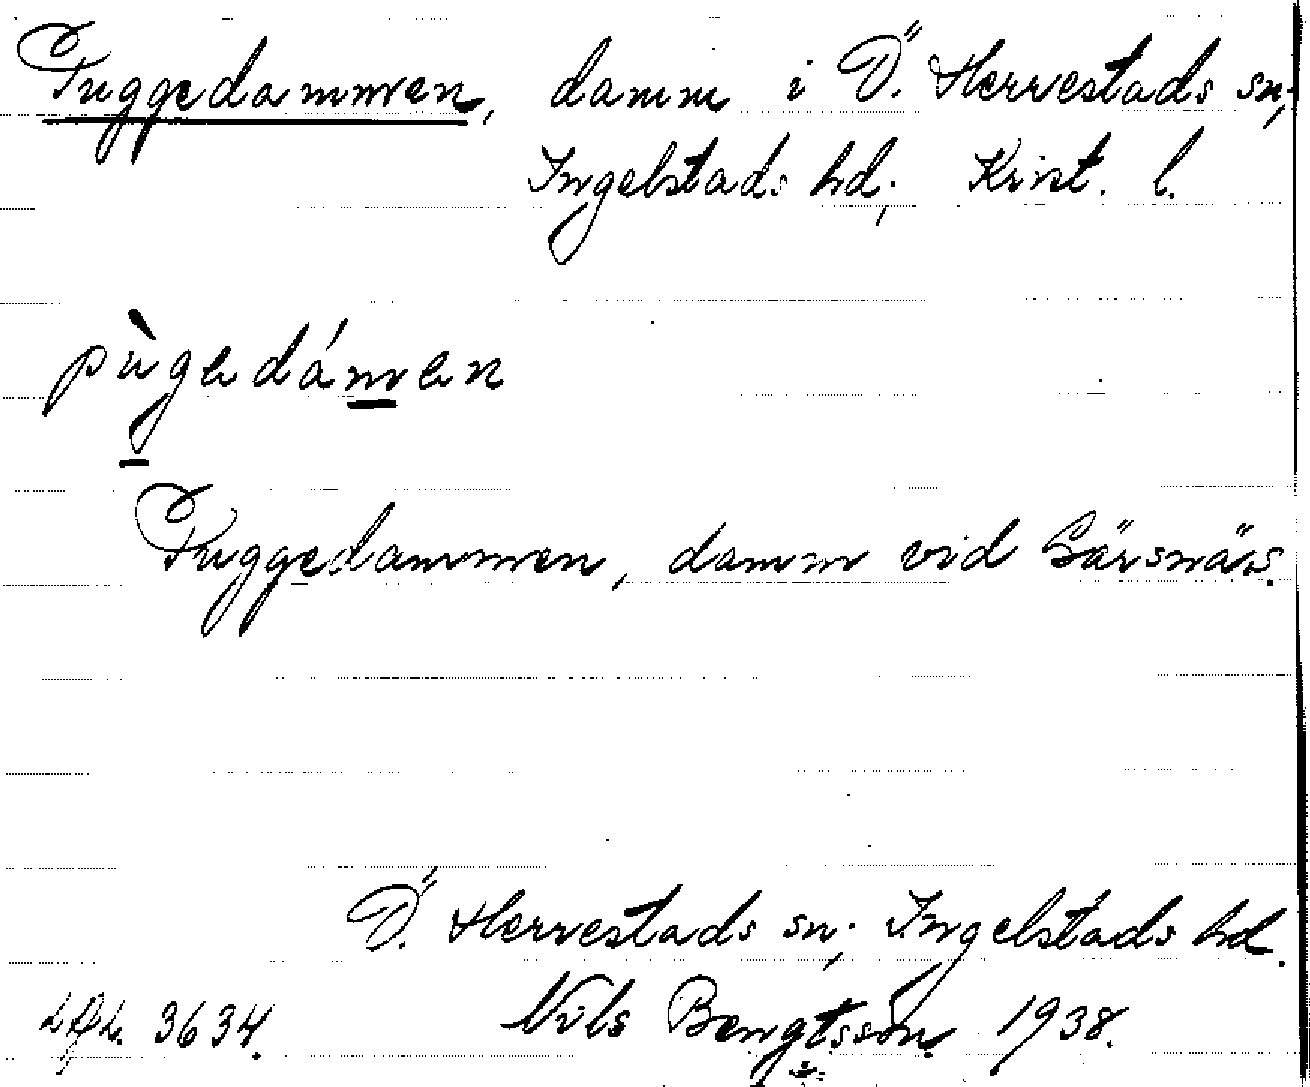 Puggedammen, damm i Ö. Herrestads sn,
Ingelstads hd, Krist. l.
pùgedámen
Puggedammen, damm vid Gärsnäs.
Ö. Herrestads sn, Ingelstads hd.
3634. Nils Bengtsson 1938.